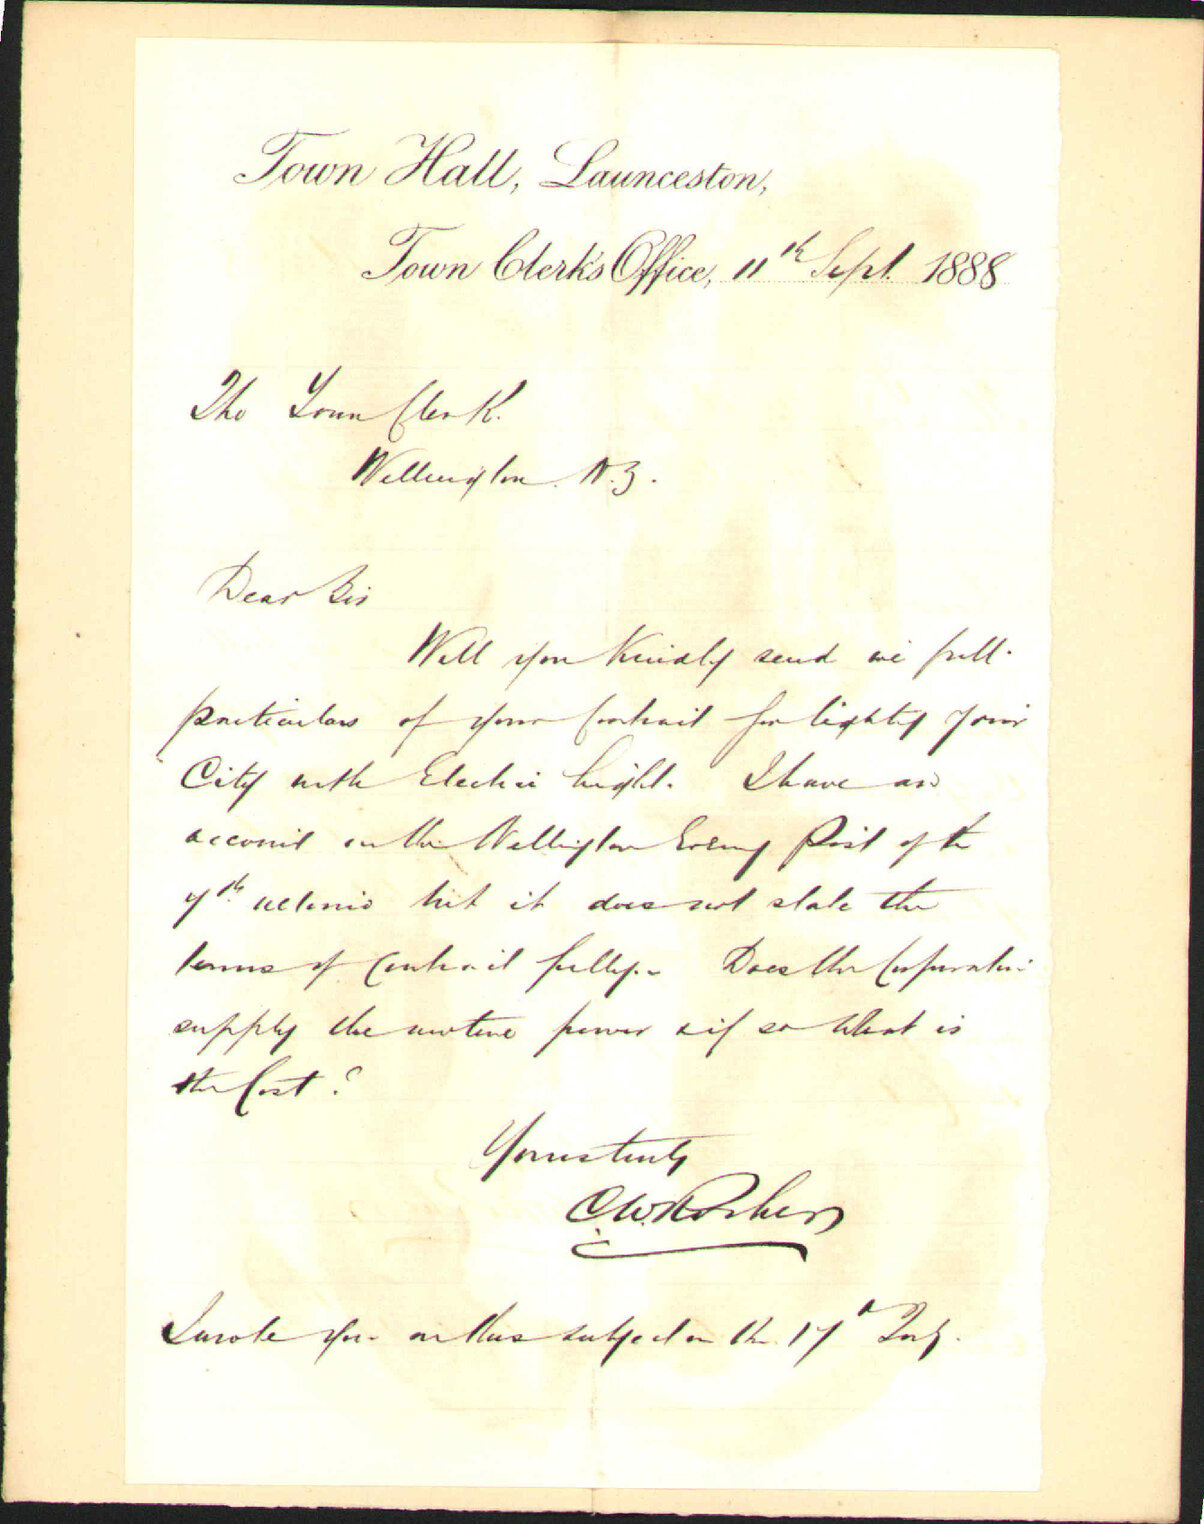 Town Hall, Launceston,
Town Clerk's Office, 11th Sept. 1888
The Town Clerk.
Wellington. N.Z.
Dear Sir
Will you kindly send me full
particulars of your Contract for lighting your
City with Electric Light. I have an
account in the Wellington Evening Post of the
7th but it does not state the
terms of Contract fully. Does the Corporation
supply the motive power & if so what is
the Cost?
Yours truly
C.W. Rocher
I wrote you on this subject on the 17th July.